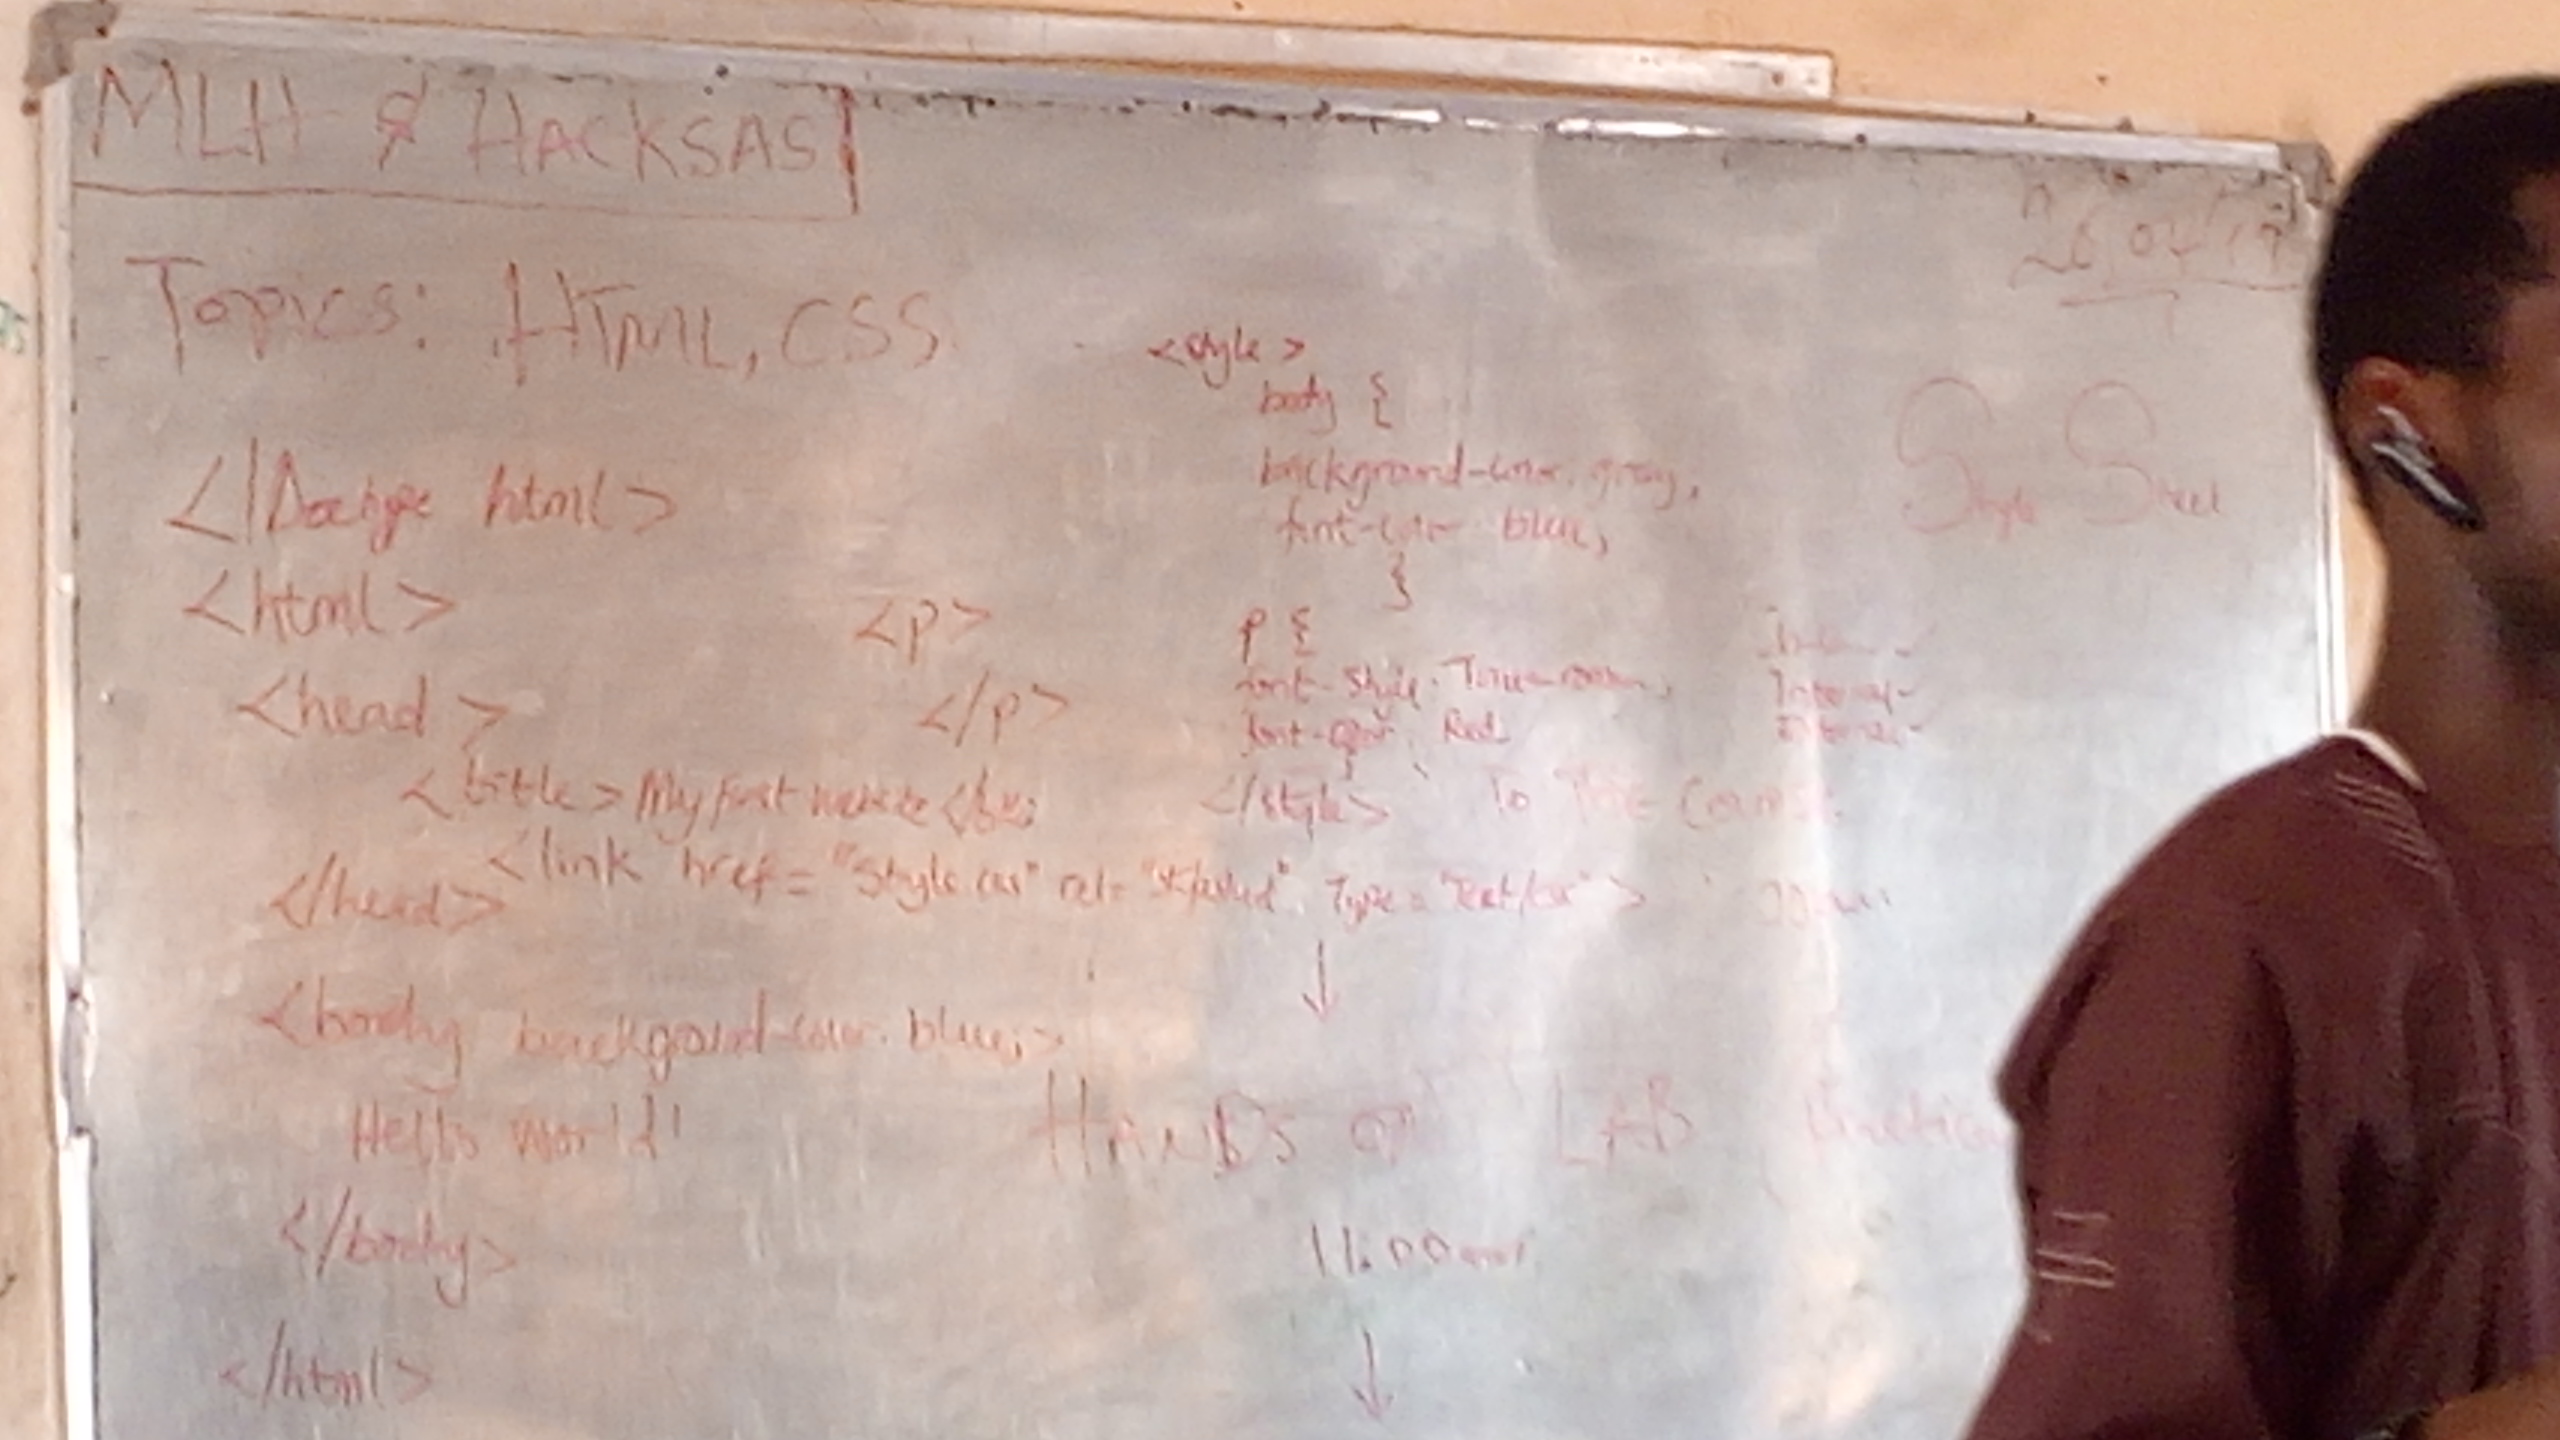 MLH & HACKSAS
Topics: HTML, CSS
<!Doctype html>
<html>
<head>
<title> My first website
<link href="Style.css" rel="stylesheet" Type="Text/css">
</head>
<body background-color: blue;>
Hello world!
</body>
</html>
<p>
</p>
<style>
body {
background-color: gray;
font-color: blue;
}
p {
font-style:
font-color: Red
}
</style>
Style Sheet
Internal
To The
HANDS on LAB
11:00am